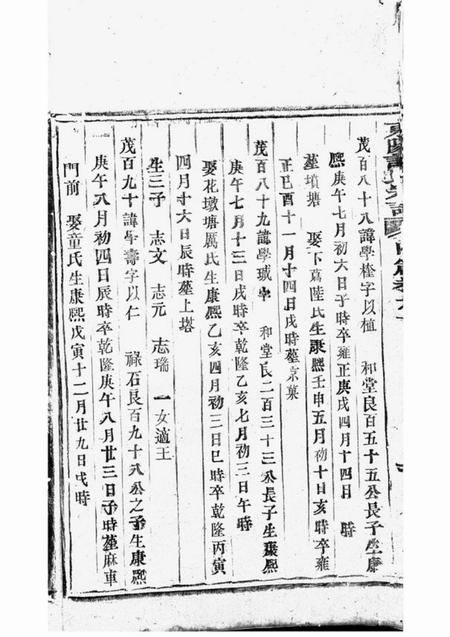 茂百八十八諱學栓字以植 和堂良百五十五公長子生康
熙庚午七月初六日子時卒雍正庚戌四月十四日 時
塟墳塘 娶下蔦陸氏生康熙壬申五月初十日亥時卒雍
正巳酉十一月十四日戌時塟京菓
茂百八十九諱學珹 和堂良二百三十三公長子生康熙
庚午七月十三日戌時卒乾隆乙亥七月初三日午時
娶花墩塘厲氏生康熙乙亥四月初三日巳時卒乾隆丙寅
四月十六日辰時塟上塔
生三子 志文 志元 志瑞 一女適王
茂百九十諱學壽字以仁 祿石良百九十八公之子生康熙
庚午八月初四日辰時卒乾隆庚午八月廿三日子時塟麻車
門前 娶童氏生康熙戊寅十二月廿九日戌時